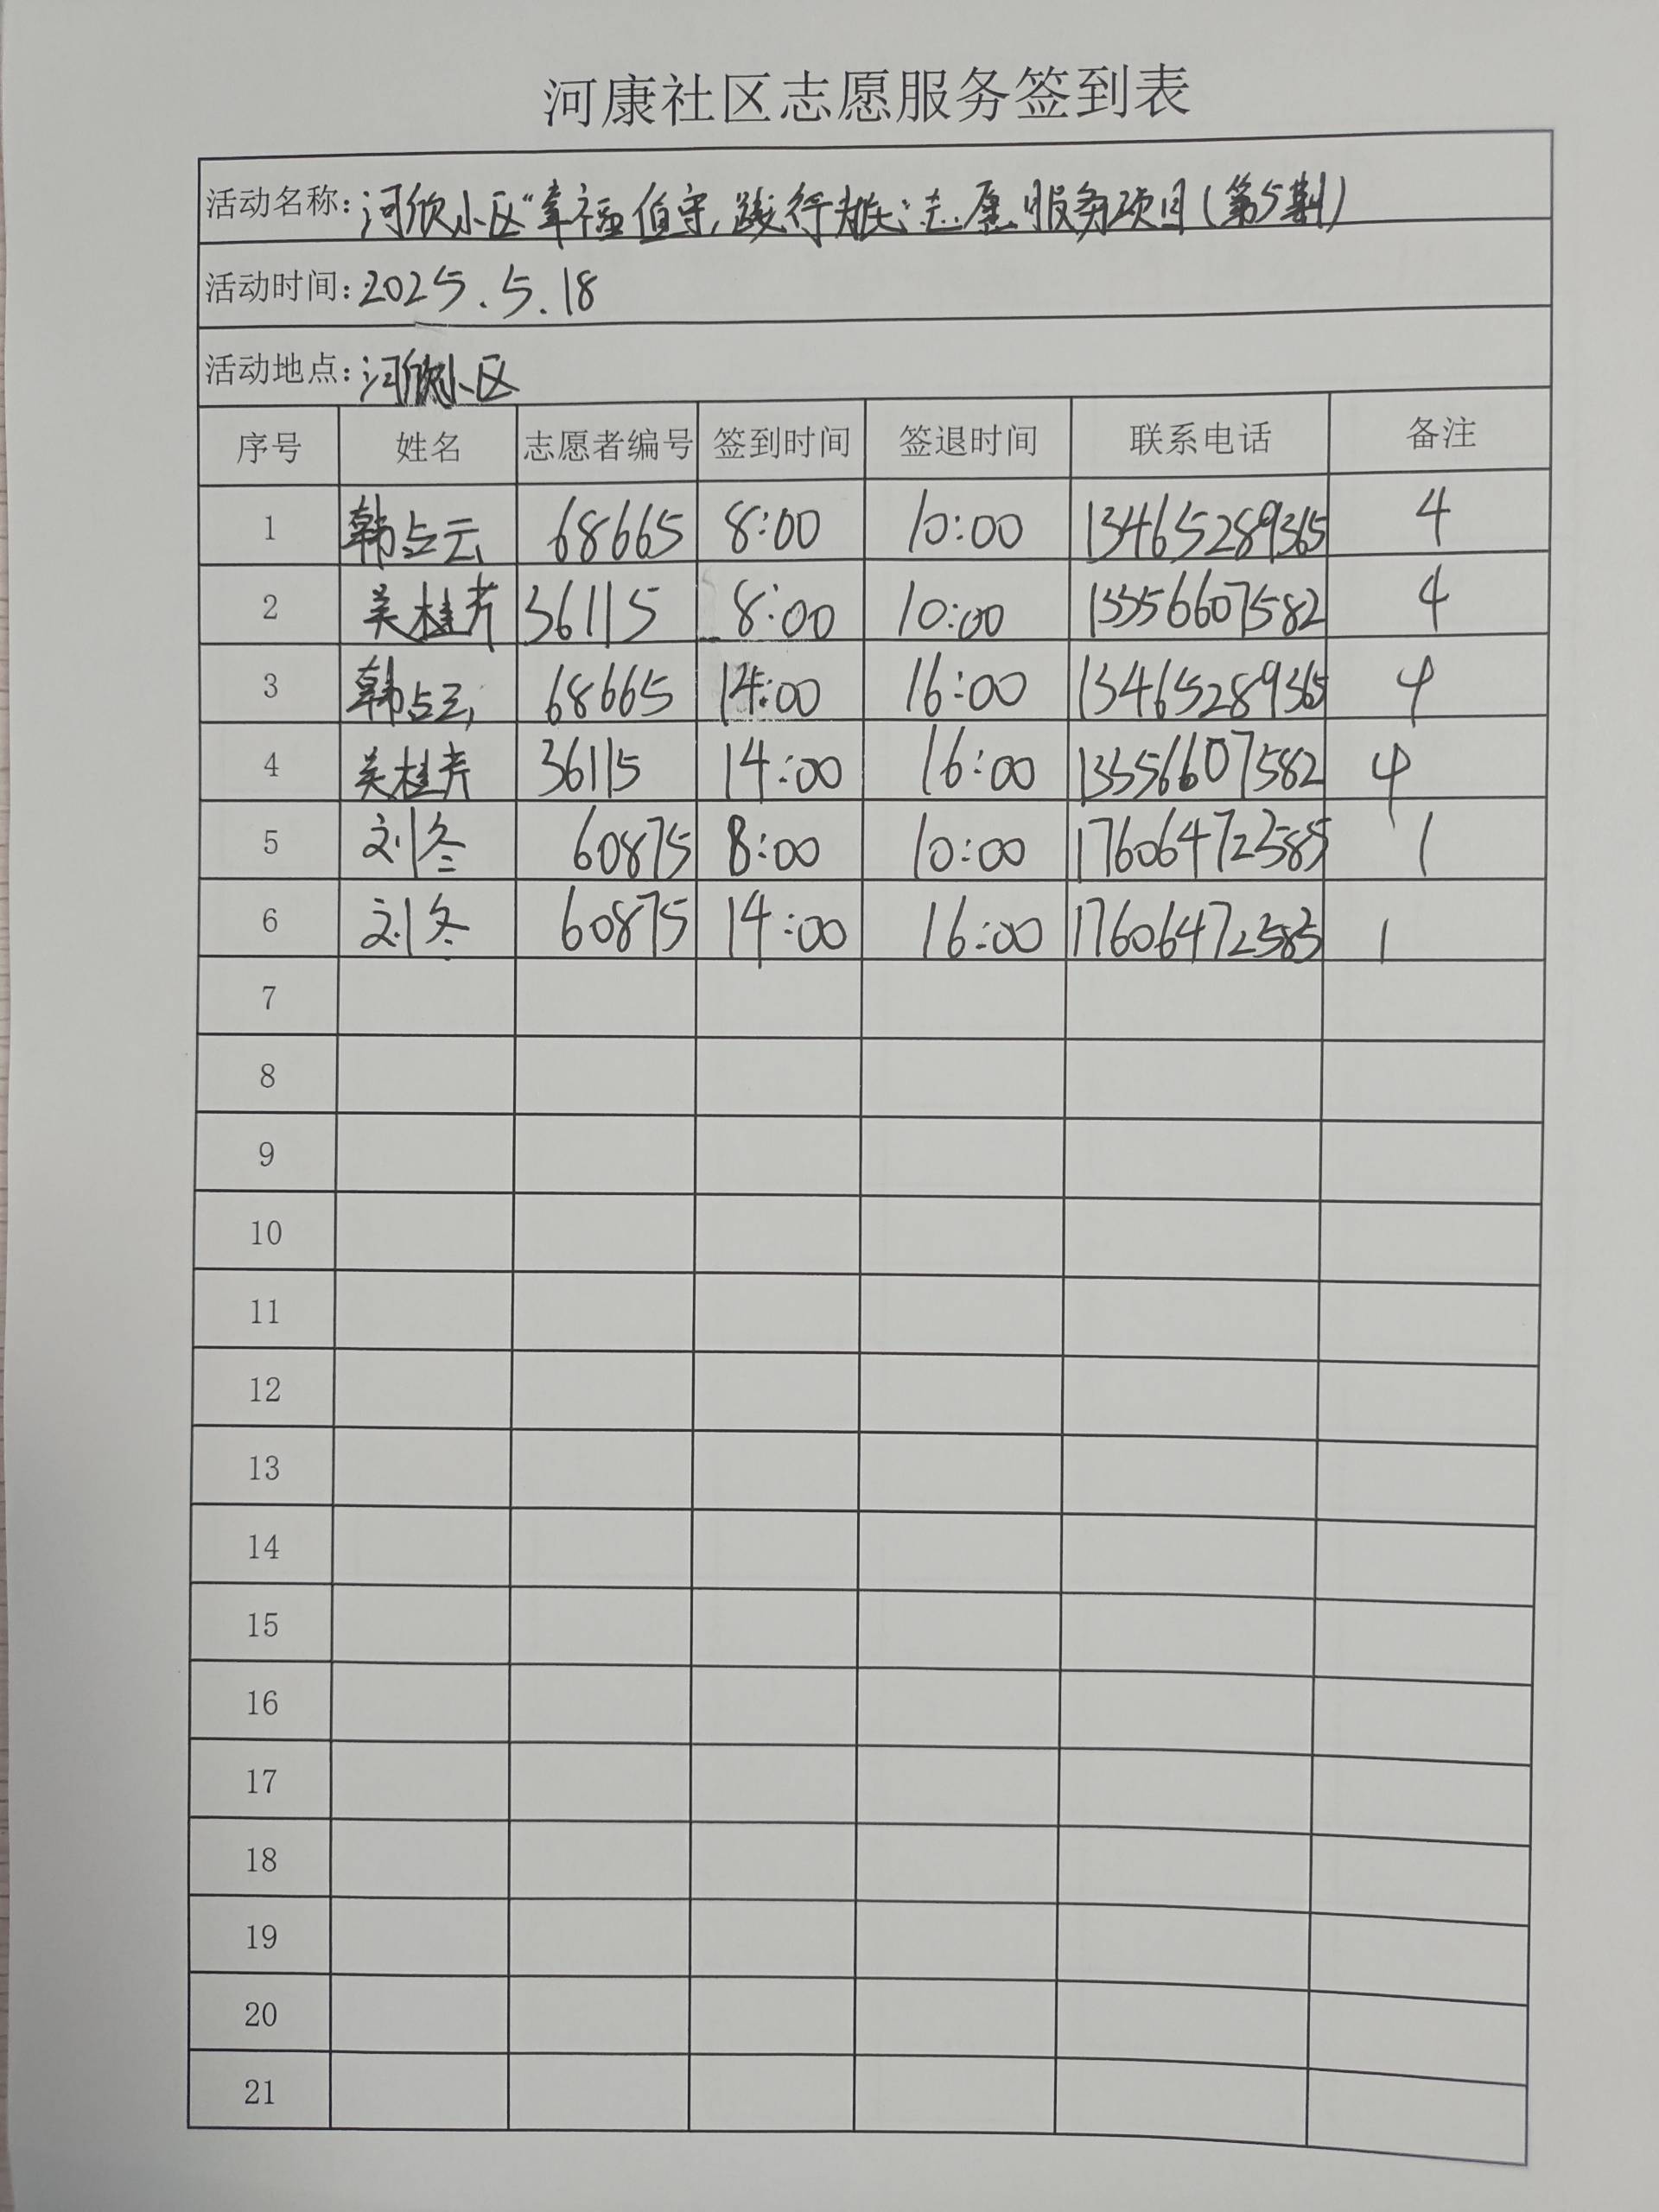 河康社区志愿服务签到表
活动名称: 河欣小区"幸福值守,践行为民"志愿服务项目(第5期)
活动时间: 2025.5.18
活动地点: 河欣小区
序号 姓名 志愿者编号 签到时间 签退时间 联系电话 备注
1 韩占云 68665 8:00 10:00 13465289365 4
2 吴桂芹 36115 8:00 10:00 13356607582 4
3 韩占云 68665 14:00 16:00 13465289365 4
4 吴桂芹 36115 14:00 16:00 13356607582 4
5 刘冬 60875 8:00 10:00 17606472385 1
6 刘冬 60875 14:00 16:00 17606472385 1
7
8
9
10
11
12
13
14
15
16
17
18
19
20
21